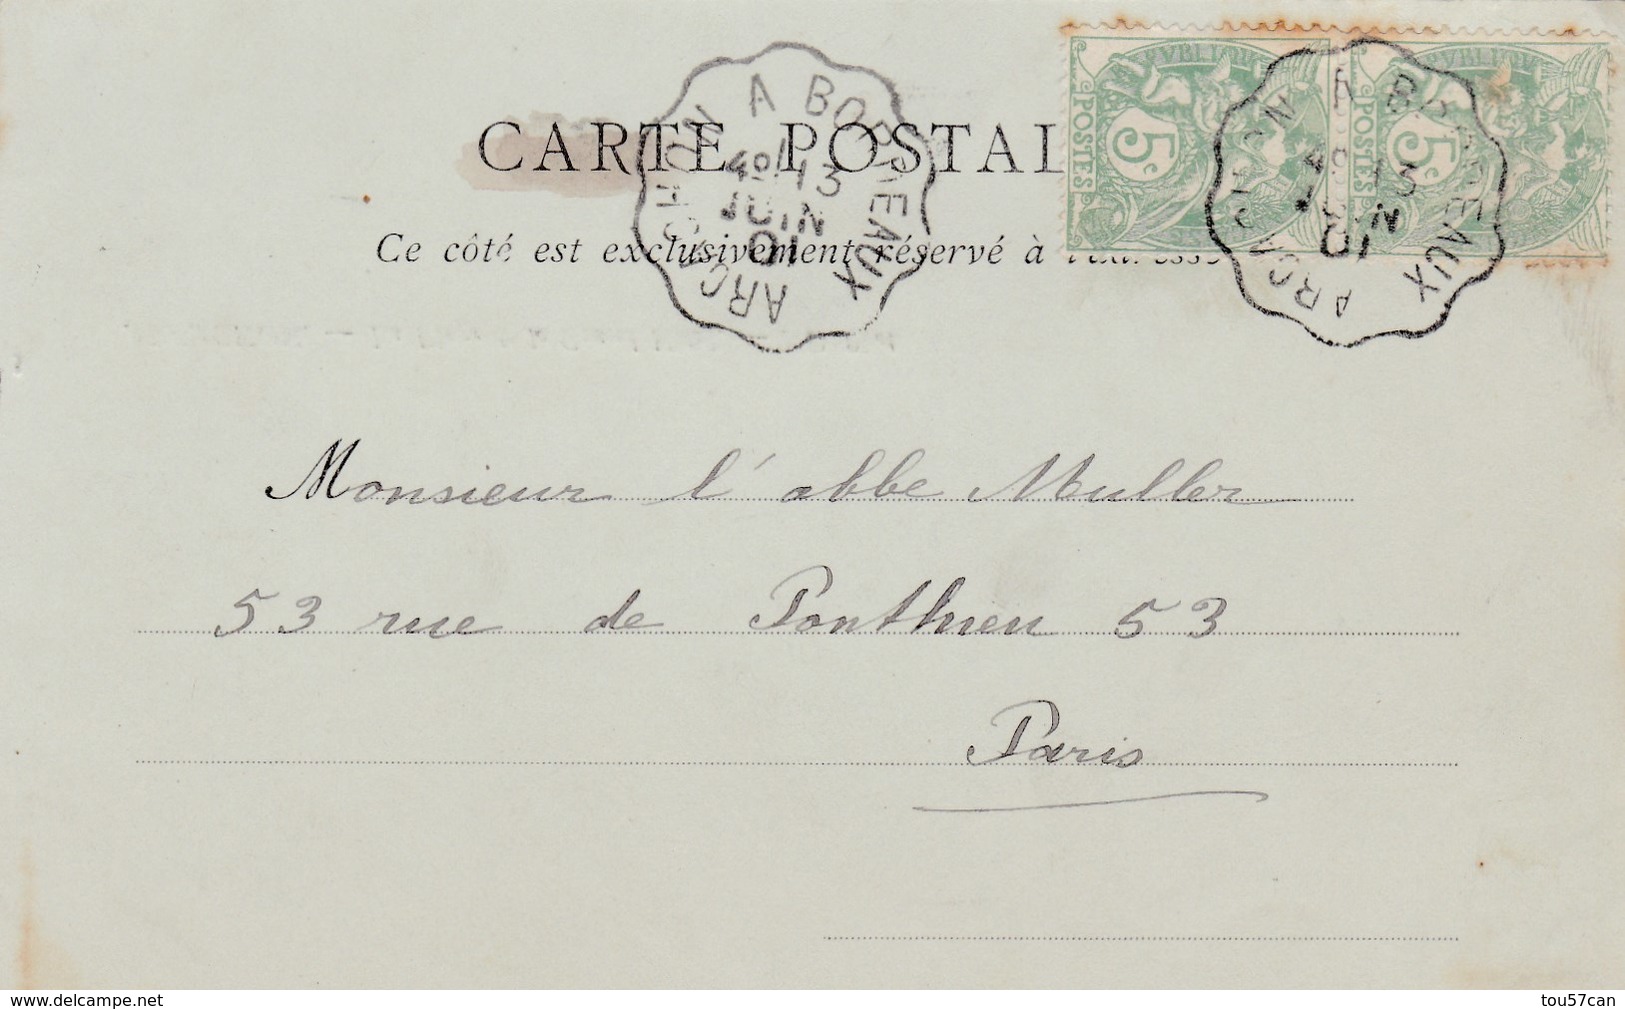 CARTE POSTAL
Ce côté est exclusivement réservé à l'adresse
ARCACHON A BORDEAUX
4º 13
JUIN
01
POSTES
5c
POSTES
5c
ARCACHON A BORDEAUX
4º 13
JUIN
01
Monsieur l'abbe Muller
53 rue de Ponthieu 53
Paris
www.delcampe.net
tou57can